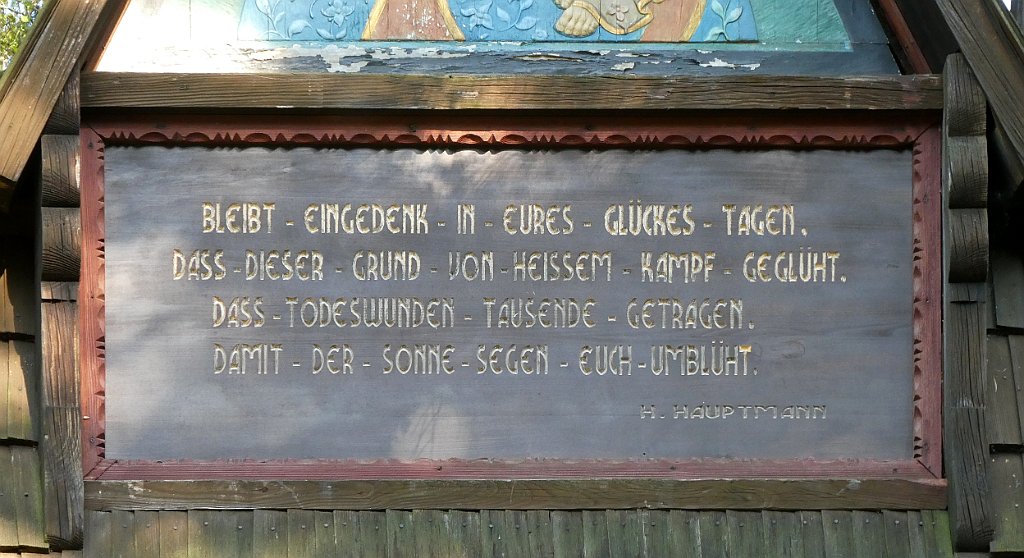 BLEIBT - EINGEDENK - IN - EURES - GLÜCKES - TAGEN,
DASS - DIESER - GRUND - VON - HEISSEM - KAMPF - GEGLÜHT.
DASS - TODESWUNDEN - TAUSENDE - GETRAGEN,
DAMIT - DER - SONNE - SEGEN - EUCH - UMBLÜHT.
H. HAUPTMANN